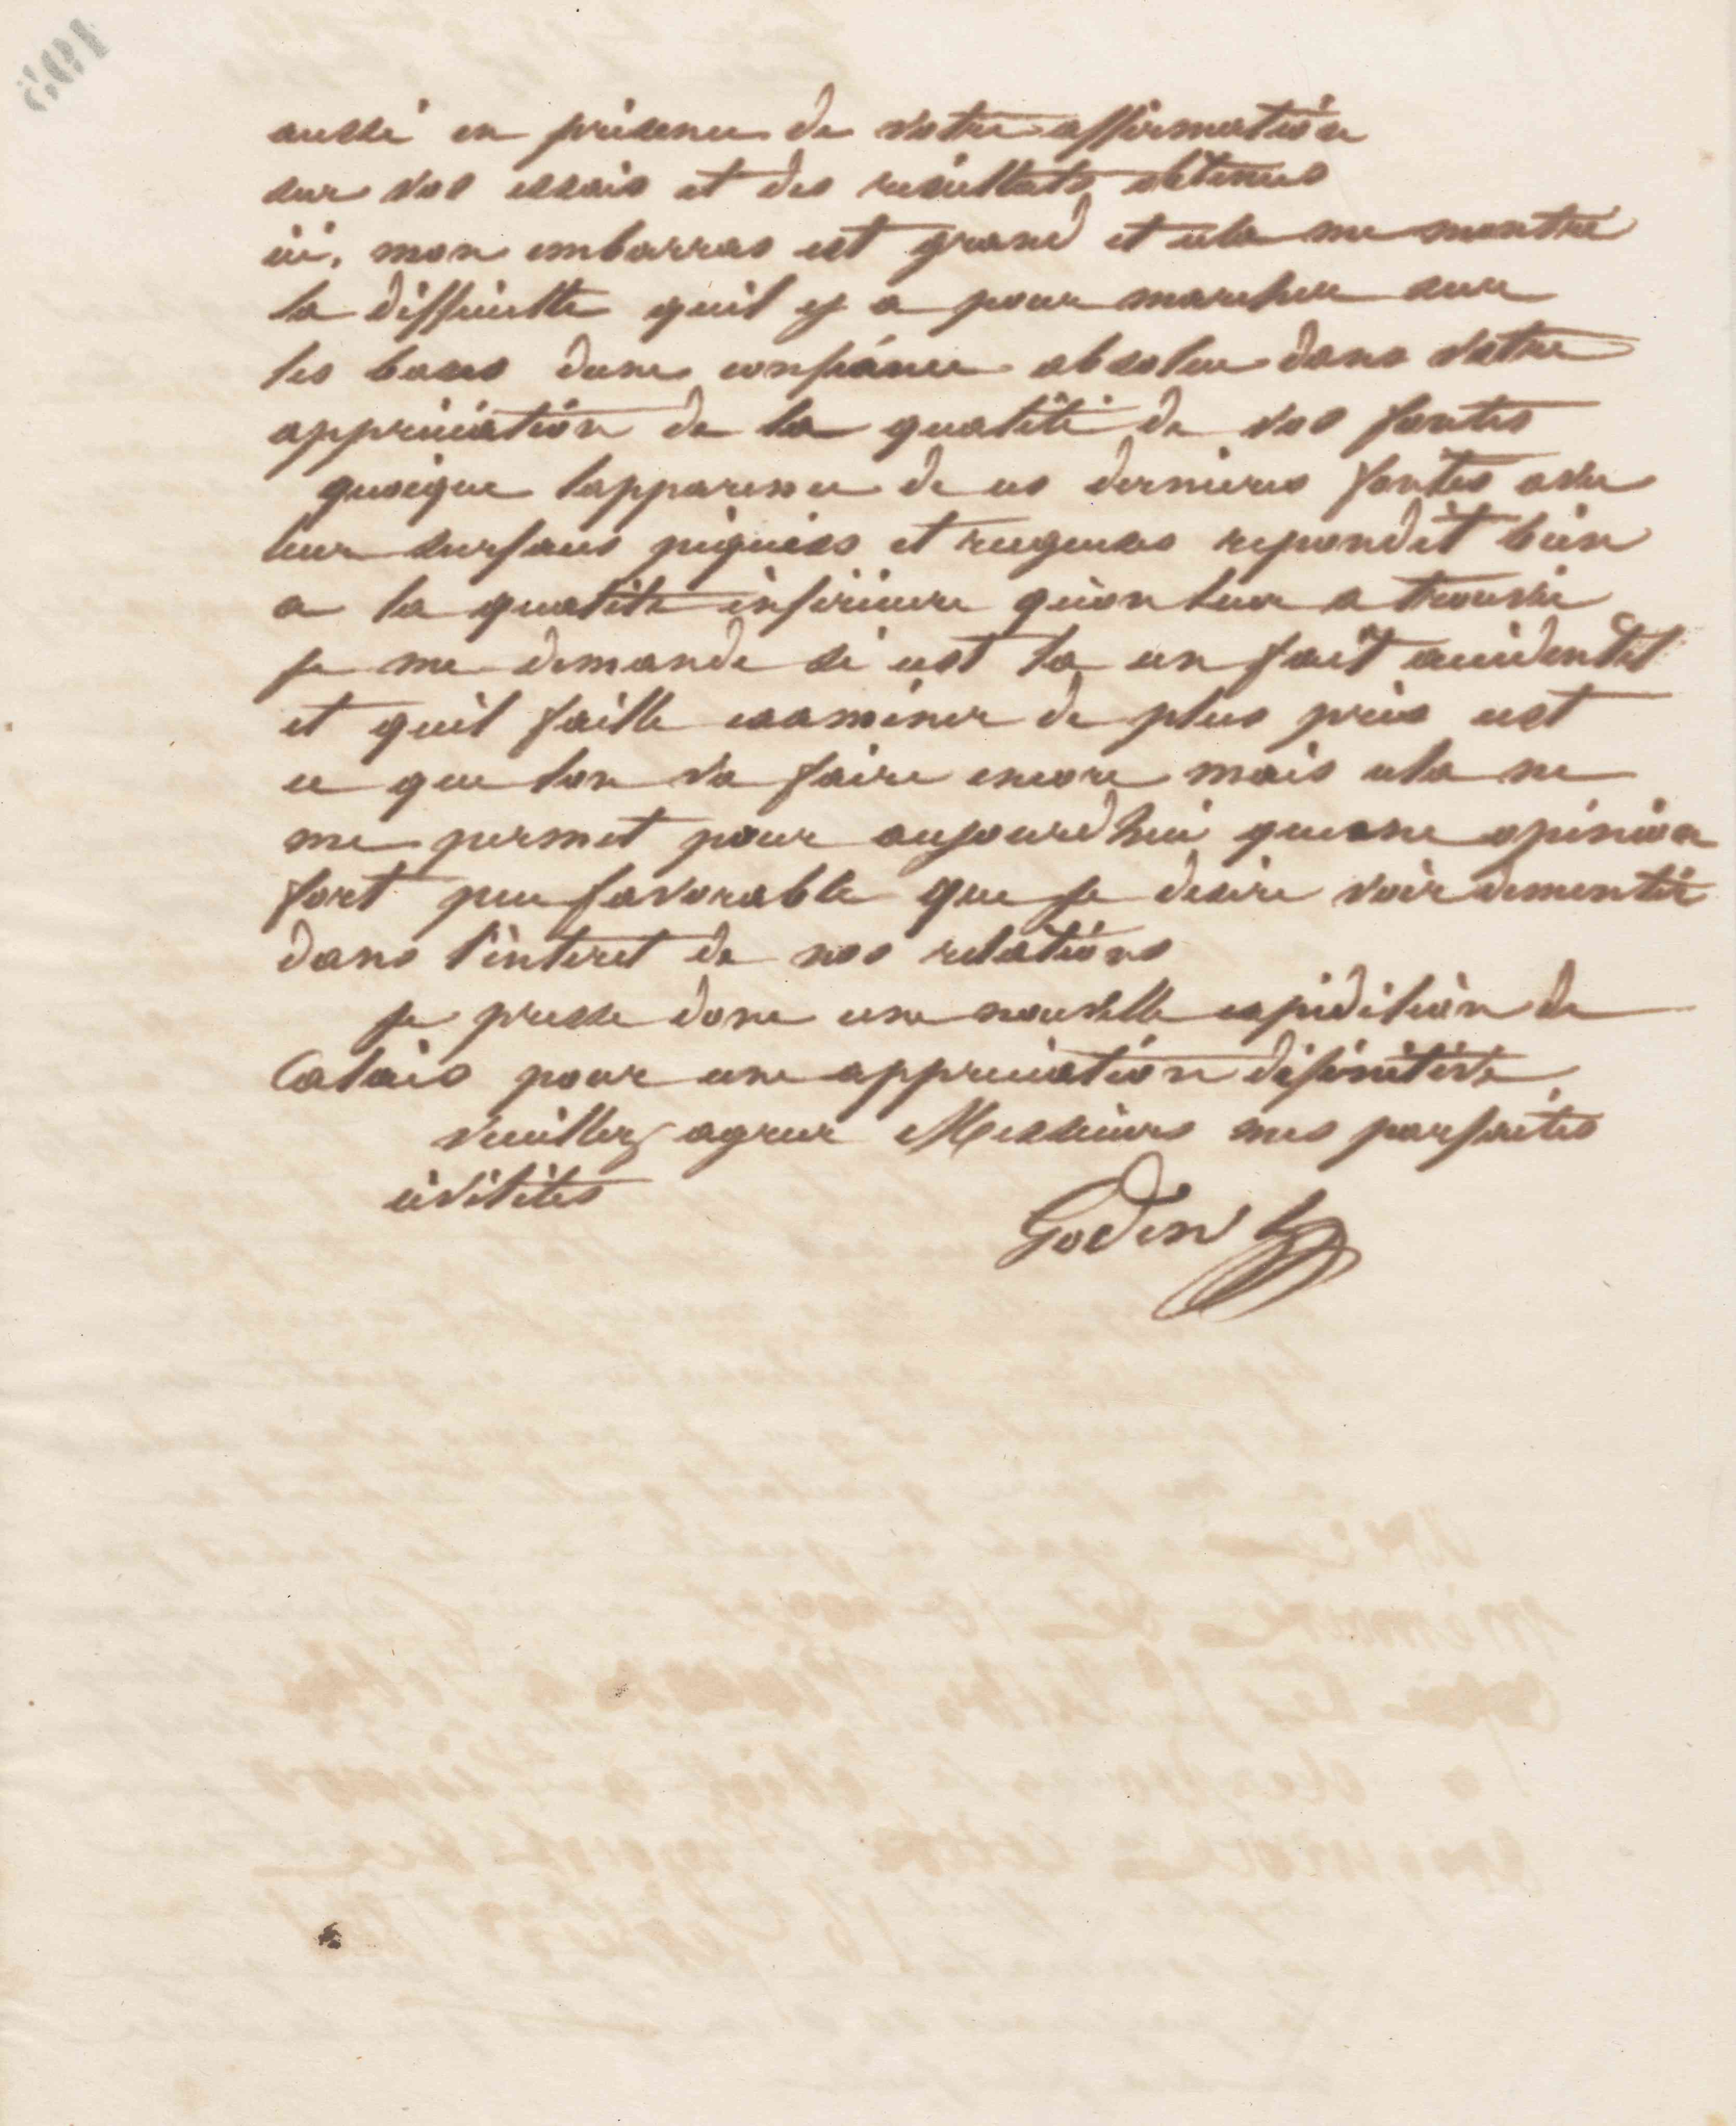 aussi en présence de votre affirmation
sur vos essais et des resultats obtenus
ici, mon embarras est grand et cela me montre
la difficulte quil y a pour marcher sur
les bases dune confiance absolue dans votre
appréciation de la qualité de vos fontes
quoique lapparence de ces dernieres fontes avec
leur surfaces piquées et rugueuses repondit bien
a la qualité inférieure qu'on leur a trouvée
je me demande si cest la un fait accidentel
et quil faille examiner de plus près cest
ce que lon va faire encore mais cela ne
me permet pour aujourdhui quune opinion
fort peu favorable que je desire voir dementir
dans l'interet de nos relations
je presse donc une nouvelle expédition de
Calais pour une appréciation définitive
Veuillez agreer Messieurs mes parfaites
civilités
Godin